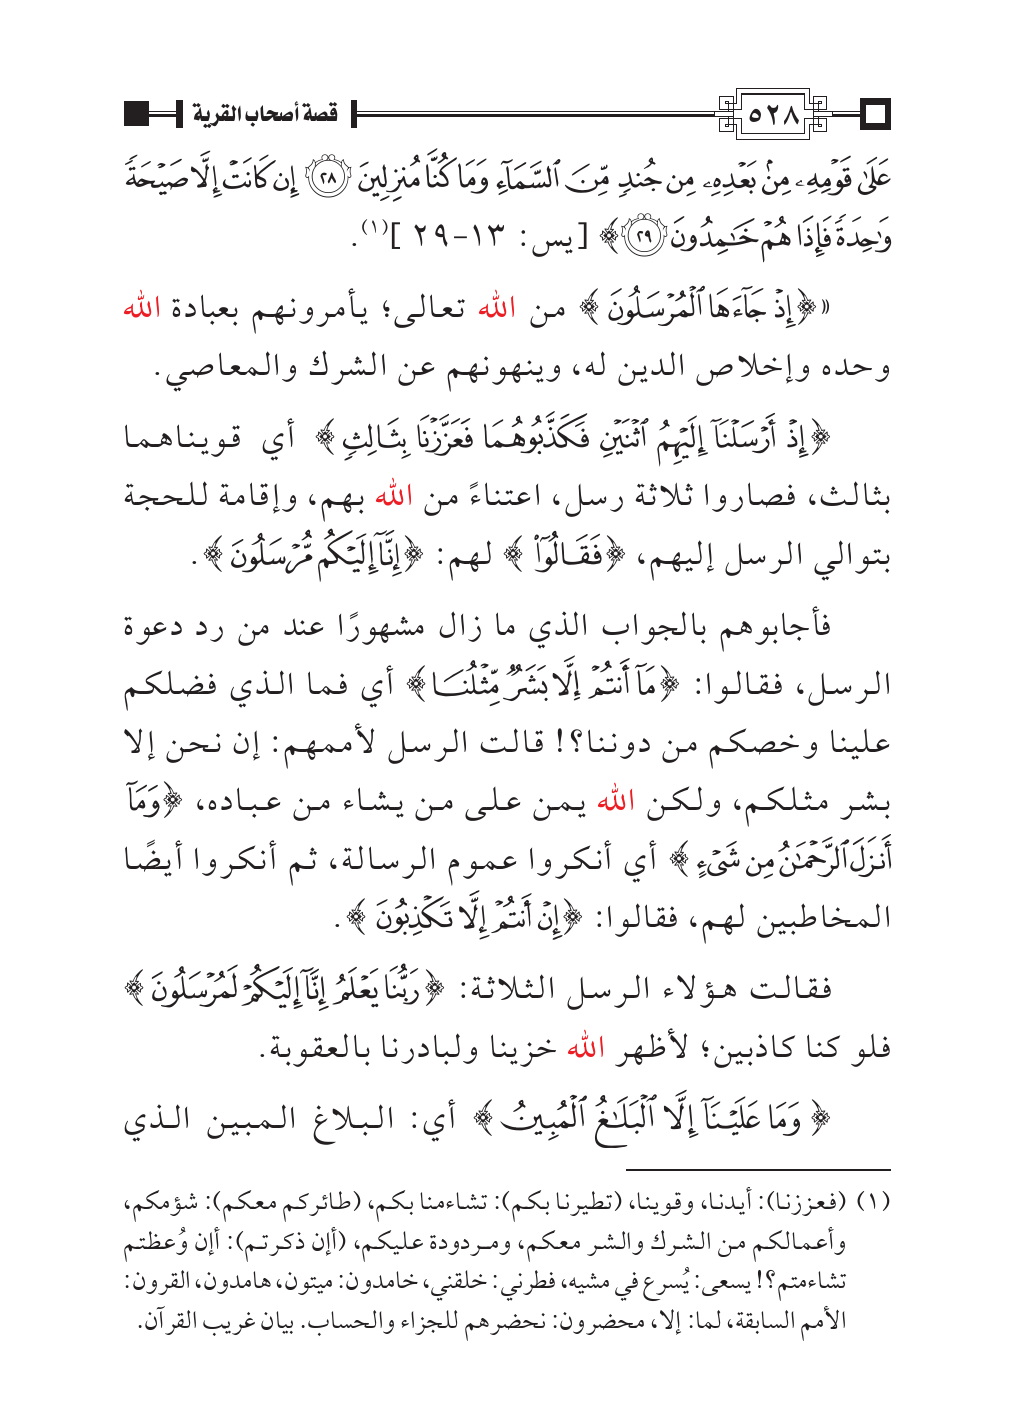 ٥٢٨ قصة أصحاب القرية
عَلَىٰ قَوْمِهِۦ مِنۢ بَعْدِهِۦ مِن جُندٍ مِّنَ ٱلسَّمَآءِ وَمَا كُنَّا مُنزِلِينَ ٢٨ إِن كَانَتْ إِلَّا صَيْحَةً
وَٰحِدَةً فَإِذَا هُمْ خَـٰمِدُونَ ٢٩﴾ [يس: ١٣-٢٩](١).
«﴿إِذْ جَآءَهَا ٱلْمُرْسَلُونَ﴾ من الله تعالى؛ يأمرونهم بعبادة الله
وحده وإخلاص الدين له، وينهونهم عن الشرك والمعاصي.
﴿إِذْ أَرْسَلْنَآ إِلَيْهِمُ ٱثْنَيْنِ فَكَذَّبُوهُمَا فَعَزَّزْنَا بِثَالِثٍ﴾ أي قويناهما
بثالث، فصاروا ثلاثة رسل، اعتناءً من الله بهم، وإقامة للحجة
بتوالي الرسل إليهم، ﴿فَقَالُوٓا۟﴾ لهم: ﴿إِنَّآ إِلَيْكُم مُّرْسَلُونَ﴾.
فأجابوهم بالجواب الذي ما زال مشهورًا عند من رد دعوة
الرسل، فقالوا: ﴿مَآ أَنتُمْ إِلَّا بَشَرٌ مِّثْلُنَا﴾ أي فما الذي فضلكم
علينا وخصكم من دوننا؟! قالت الرسل لأممهم: إن نحن إلا
بشر مثلكم، ولكن الله يمن على من يشاء من عباده، ﴿وَمَآ
أَنزَلَ ٱلرَّحْمَـٰنُ مِن شَىْءٍ﴾ أي أنكروا عموم الرسالة، ثم أنكروا أيضًا
المخاطبين لهم، فقالوا: ﴿إِنْ أَنتُمْ إِلَّا تَكْذِبُونَ﴾.
فقالت هؤلاء الرسل الثلاثة: ﴿رَبُّنَا يَعْلَمُ إِنَّآ إِلَيْكُمْ لَمُرْسَلُونَ﴾
فلو كنا كاذبين؛ لأظهر الله خزينا ولبادرنا بالعقوبة.
﴿وَمَا عَلَيْنَآ إِلَّا ٱلْبَلَـٰغُ ٱلْمُبِينُ﴾ أي: البلاغ المبين الذي
(١) (فعززنا): أيدنا، وقوينا، (تطيرنا بكم): تشاءمنا بكم، (طائركم معكم): شؤمكم،
وأعمالكم من الشرك والشر معكم، ومردودة عليكم، (أإن ذكرتم): أإن وُعظتم
تشاءمتم؟! يسعى: يُسرع في مشيه، فطرني: خلقني، خامدون: ميتون، هامدون، القرون:
الأمم السابقة، لما: إلا، محضرون: نحضرهم للجزاء والحساب. بيان غريب القرآن.